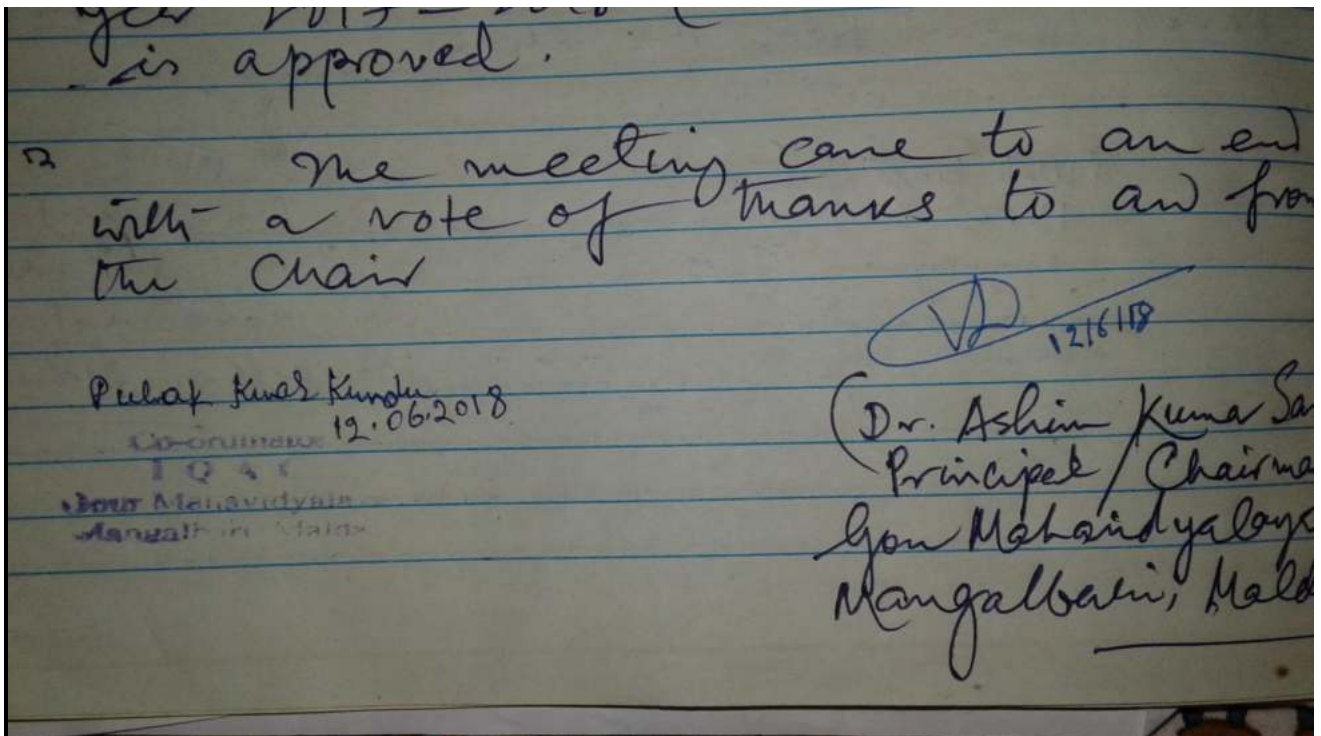 year 2017-2018
is approved.
The meeting came to an end
with a vote of thanks to and from
the Chair
12/6/18
Pulak Kumar Kundu
12.06.2018
Co-ordinator
I Q A C
Gour Mahavidyala
Mangalbari Malda
(Dr. Ashim Kumar Sa
Principal / Chairma
Gour Mahavidyalaya
Mangalbari, Mald